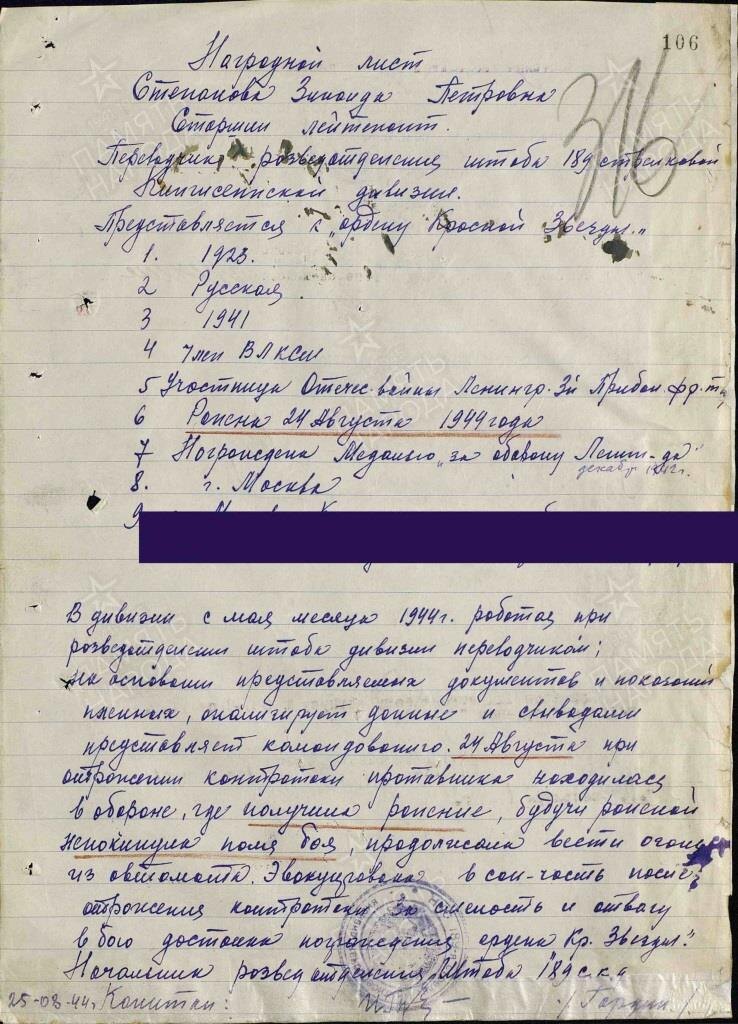 106
Наградной лист
316
Степанова Зинаида Петровна
Старший лейтенант.
Переводчик разведотделения штаба 189 стрелковой
Кингисеппской дивизии.
Представляется к "ордену Красной Звезды."
1. 1923.
2 Русская
3 1941
4 член ВЛКСМ
5 Участница Отечес. войны Ленингр. 3й Прибал. фр.
6 Ранена 24 Августа 1944 года
7 Награждена Медалью "за оборону Ленин-да"
декабр 1942г.
8. г. Москва
9
В дивизии с мая месяца 1944г. работая при
разведотделении штаба дивизии переводчиком;
на основании представляемых документов и показаний
пленных, анализирует данные и с выводами
представляет командованию. 24 Августа при
отражении контратаки противника находилась
в обороне, где получила ранение, будучи раненой
непокинула поля боя, продолжала вести огонь
из автомата. Эвакуирована в сан-часть после
отражения контратаки За смелость и отвагу
в бою достойна награждения ордена Кр. Звезды."
Начальник разведотделения Штаба 189 с.к.д
25-08-44г. Капитан:
ПАМЯТЬ НАРОДА